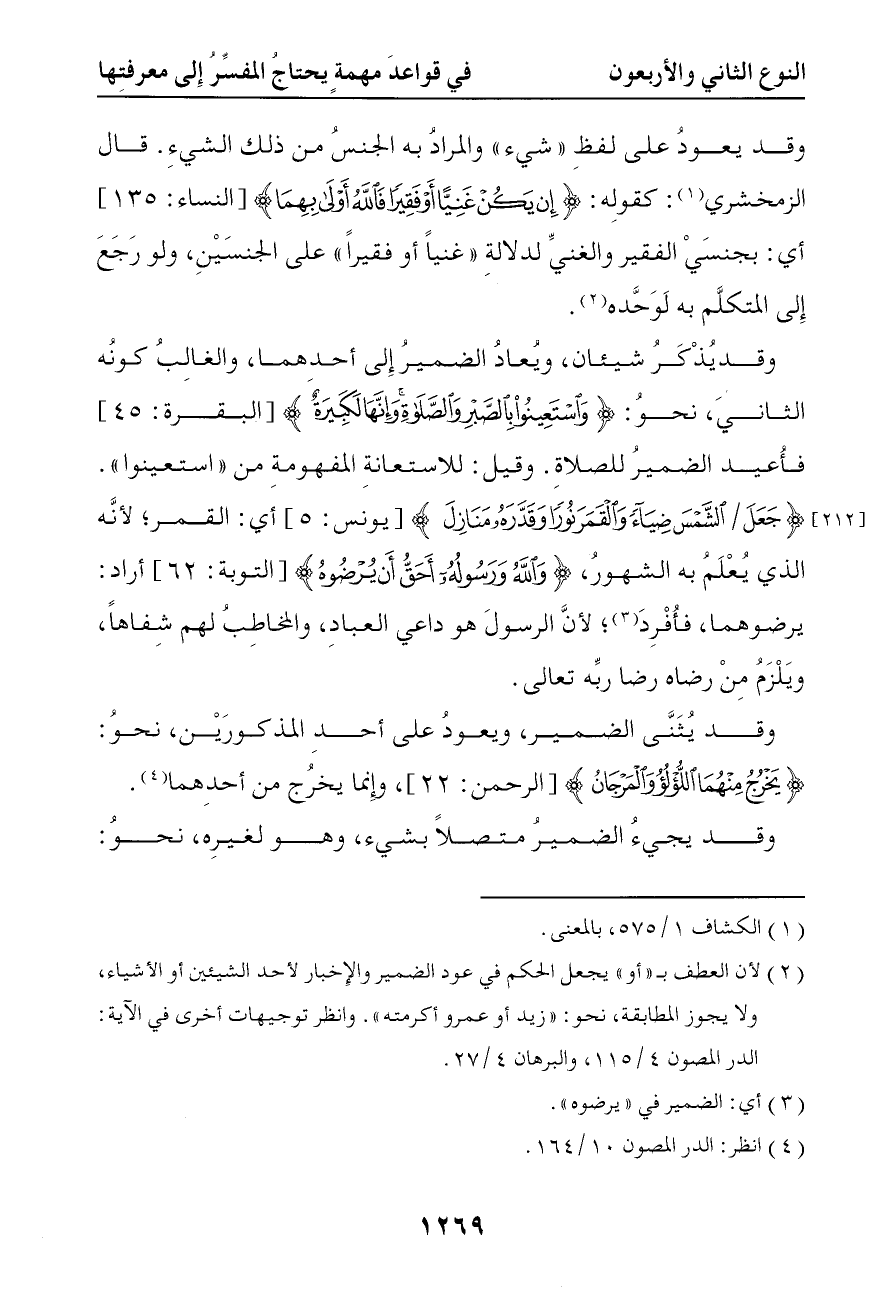 النوع الثاني والأربعون في قواعدَ مهمةٍ يحتاجُ المفسِّرُ إلى معرفتِها
وقد يعودُ على لفظِ «شيء» والمرادُ به الجنسُ من ذلك الشيءِ. قال
الزمخشري(١): كقوله: ﴿إِن يَكُنۡ غَنِيًّا أَوۡ فَقِيرٗا فَٱللَّهُ أَوۡلَىٰ بِهِمَا﴾ [النساء: ١٣٥]
أي: بجنسَيْ الفقير والغنيِّ لدلالةِ «غنياً أو فقيراً» على الجنسَيْنِ، ولو رَجَعَ
إلى المتكلَّم به لَوَحَّده(٢).
وقد يُذْكَرُ شيئان، ويُعادُ الضميرُ إلى أحدِهما، والغالبُ كونُه
الثانيَ، نحوُ: ﴿وَٱسۡتَعِينُواْ بِٱلصَّبۡرِ وَٱلصَّلَوٰةِۚ وَإِنَّهَا لَكَبِيرَةٌ﴾ [البقرة: ٤٥]
فأُعيد الضميرُ للصلاة. وقيل: للاستعانة المفهومة من «استعينوا».
﴿جَعَلَ / ٱلشَّمۡسَ ضِيَآءٗ وَٱلۡقَمَرَ نُورٗا وَقَدَّرَهُۥ مَنَازِلَ﴾ [يونس: ٥] أي: القمر؛ لأنَّه [٢١٢]
الذي يُعْلَمُ به الشهورُ، ﴿وَٱللَّهُ وَرَسُولُهُۥٓ أَحَقُّ أَن يُرۡضُوهُ﴾ [التوبة: ٦٢] أراد:
يرضوهما، فأُفْرِدَ(٣)؛ لأنَّ الرسولَ هو داعي العباد، والمخاطِبُ لهم شِفاهاً،
ويَلْزَمُ مِنْ رضاه رضا ربِّه تعالى.
وقد يُثَنَّى الضميرِ، ويعودُ على أحدِ المذكورَيْن، نحوُ:
﴿يَخۡرُجُ مِنۡهُمَا ٱللُّؤۡلُؤُ وَٱلۡمَرۡجَانُ﴾ [الرحمن: ٢٢]، وإنما يخرُج من أحدهما(٤).
وقد يجيءُ الضميرُ متصلاً بشيء، وهو لغيره، نحوُ:
(١) الكشاف ١/ ٥٧٥، بالمعنى.
(٢) لأن العطف بـ «أو» يجعل الحكم في عود الضمير والإخبار لأحد الشيئين أو الأشياء،
ولا يجوز المطابقة، نحو: «زيد أو عمرو أكرمته». وانظر توجيهات أخرى في الآية:
الدر المصون ٤/ ١١٥، والبرهان ٤/ ٢٧.
(٣) أي: الضمير في «يرضوه».
(٤) انظر: الدر المصون ١٠/ ١٦٤.
١٢٦٩